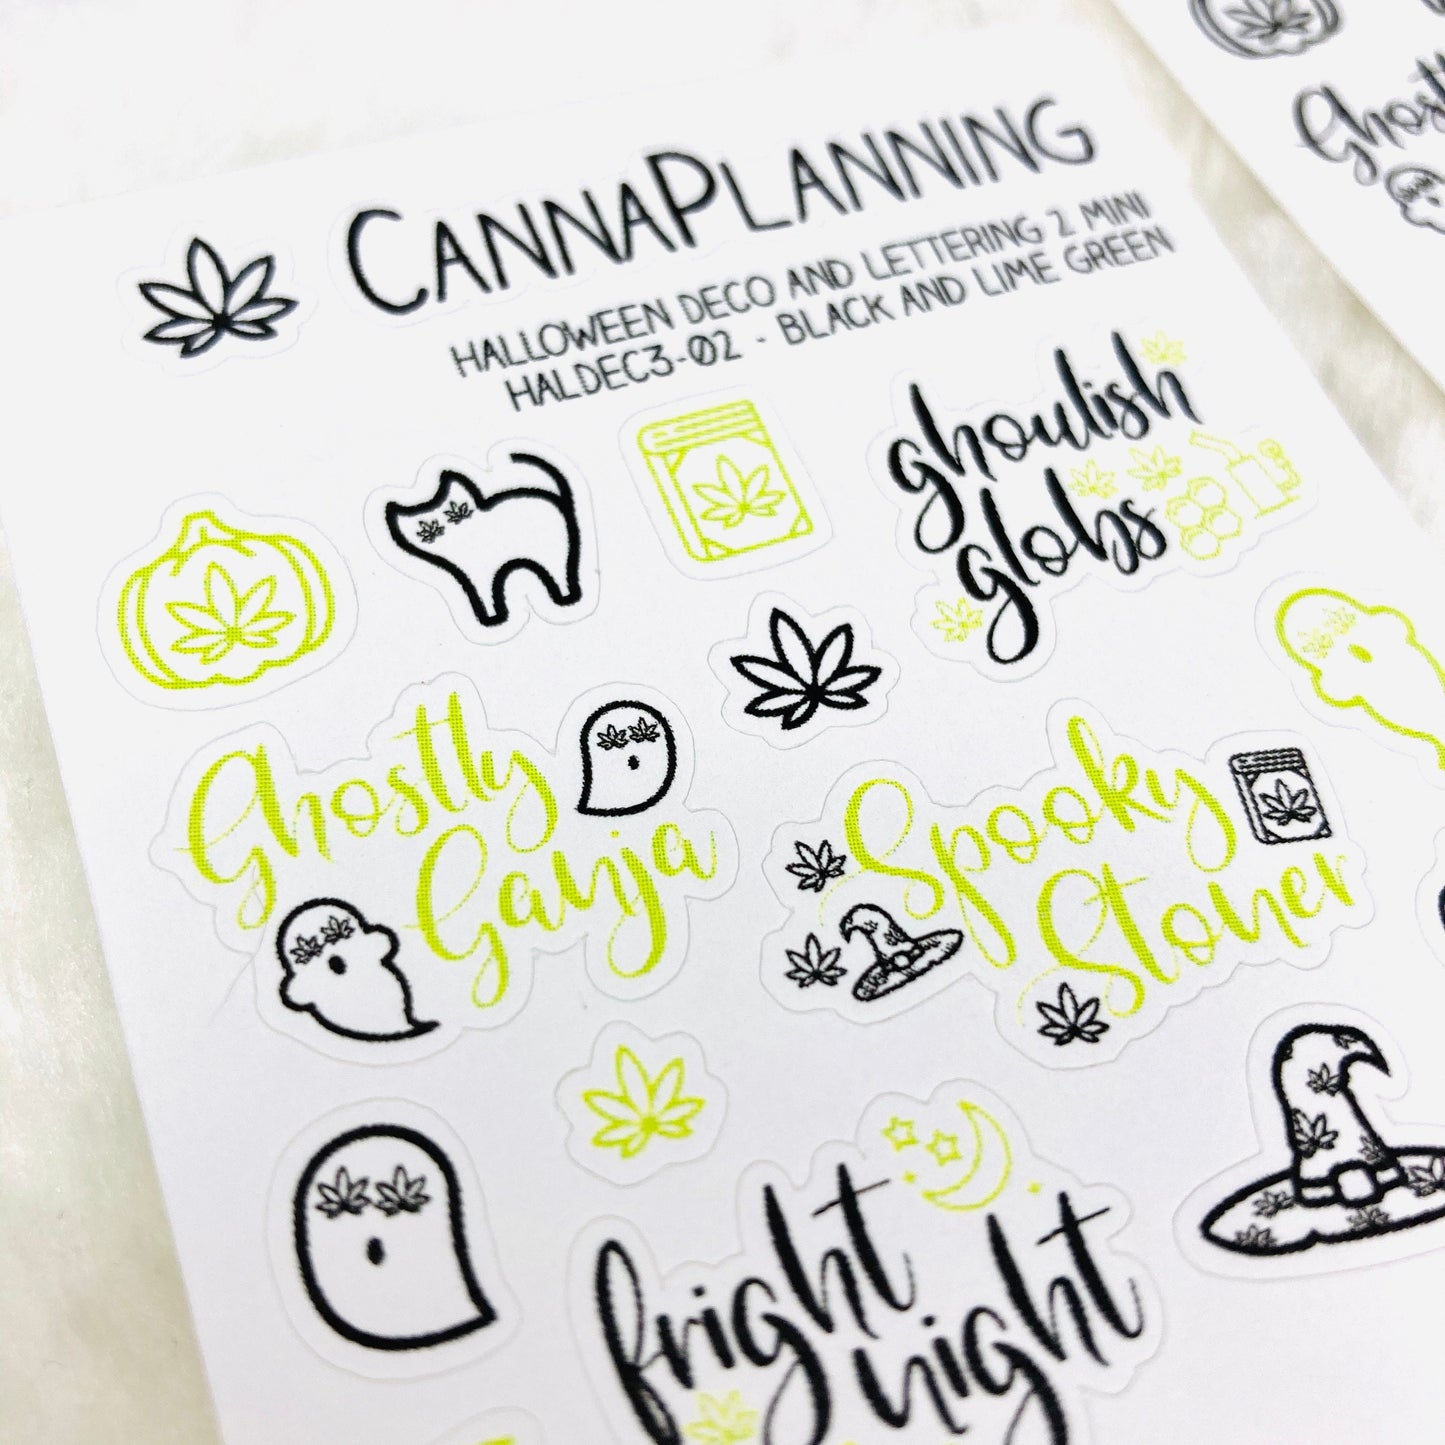 CANNAPLANNING
HALLOWEEN DECO AND LETTERING 2 MINI
HALDEC3-02 - BLACK AND LIME GREEN
ghoulish
globs
Ghostly
Ganja
Spooky
Stoner
fright
night